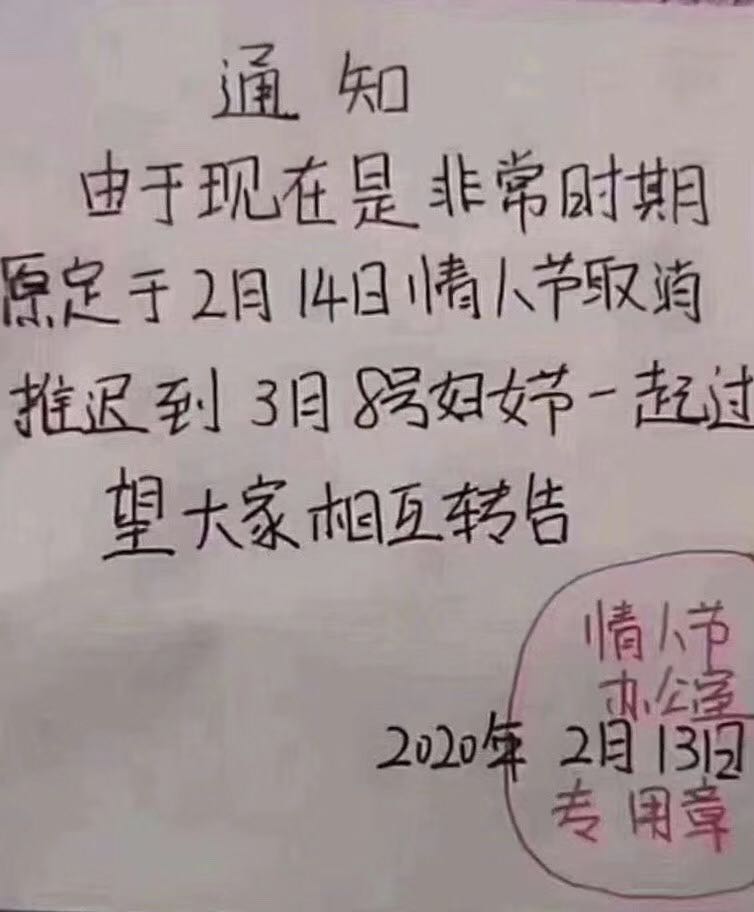 通知
由于现在是非常时期
原定于2月14日情人节取消
推迟到3月8号妇女节一起过
望大家相互转告
情人节
办公室
2020年2月13日
专用章